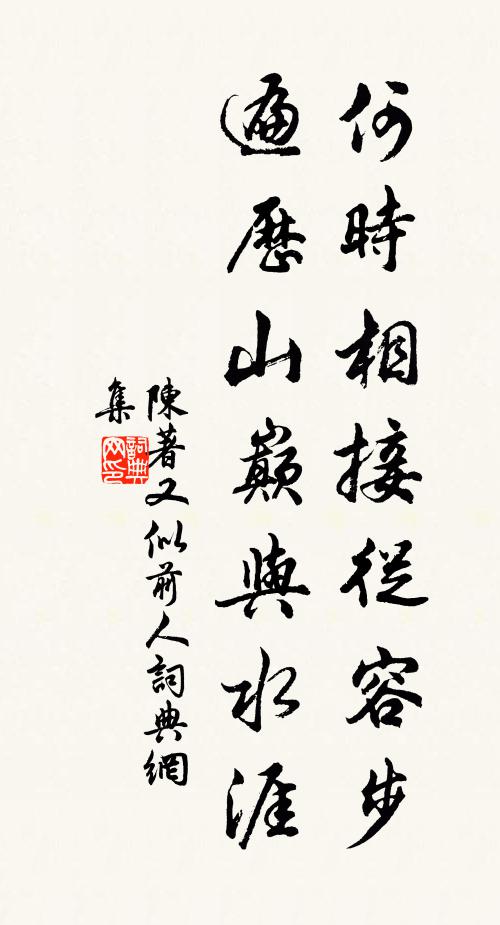 何時相接從容步
遍歷山巔與水涯
陳著又似前人詞典網
集
詞典網印